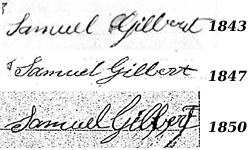 Samuel Gilbert 1843
Samuel Gilbert 1847
Samuel Gilbert 1850